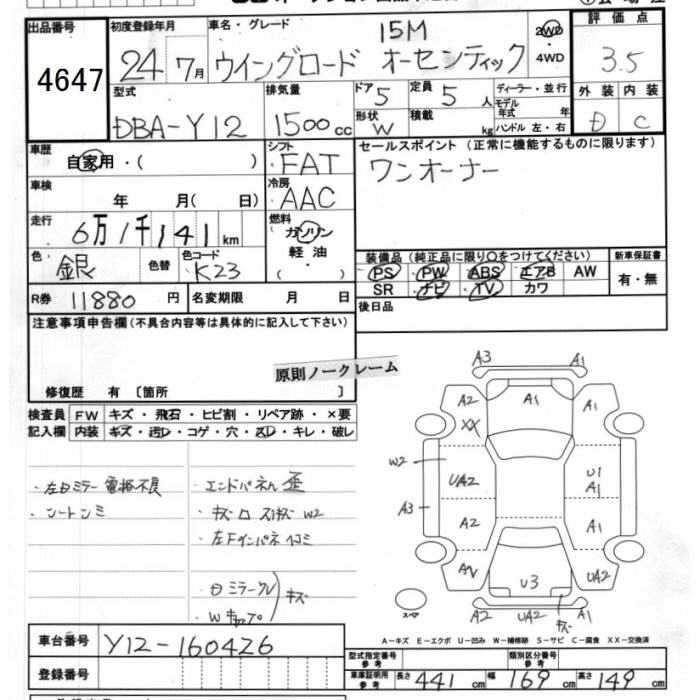 出品番号 初度登録年月 車名・グレード 15M 2WD 評価点
4647 24 7月 ウイングロード オーセンティック ・ 4WD 3.5
型式 排気量 ドア 5 定員 5 人 ディーラー・並行 外装 内装
DBA-Y12 1500cc 形状 W 積載 kg モデル年式 年 ハンドル 左・右 D C
車歴 自家用・( ) シフト FAT セールスポイント (正常に機能するものに限ります)
車検 年 月( 日) 冷房 AAC ワンオーナー
走行 6万1千141km 燃料 ガソリン
色 銀 色替 色コード K23 軽油
装備品 (純正品に限り○をつけてください) 新車保証書
PS PW ABS エアB AW 有・無
SR ナビ TV カワ
R券 11880 円 名変期限 月 日 後日品
注意事項申告欄(不具合内容等は具体的に記入して下さい)
原則ノークレーム
修復歴 有 〔箇所 〕
検査員 FW キズ・飛石・ヒビ割・リペア跡・×要
記入欄 内装 キズ・汚レ・コゲ・穴・スレ・キレ・破レ
・左Dミラー電格不良
・シートシミ
・エンドパネル歪
・左Fインパネ
・Dミラークレ
・Wキャップ
キズ
A3 A1
A2 A1 A1
XX
W2 UA2 U1
A1
A3 A2 A1
U3 UA2
キズ
A2 UA2 A1
スペア
A-キズ E-エクボ U-凹み W-補修跡 S-サビ C-腐食 XX-交換済
車台番号 Y12-160426
型式指定番号 参考 類別区分番号 参考
登録番号 車庫証明用 参考 長さ 441 cm 幅 169 cm 高さ 149 cm